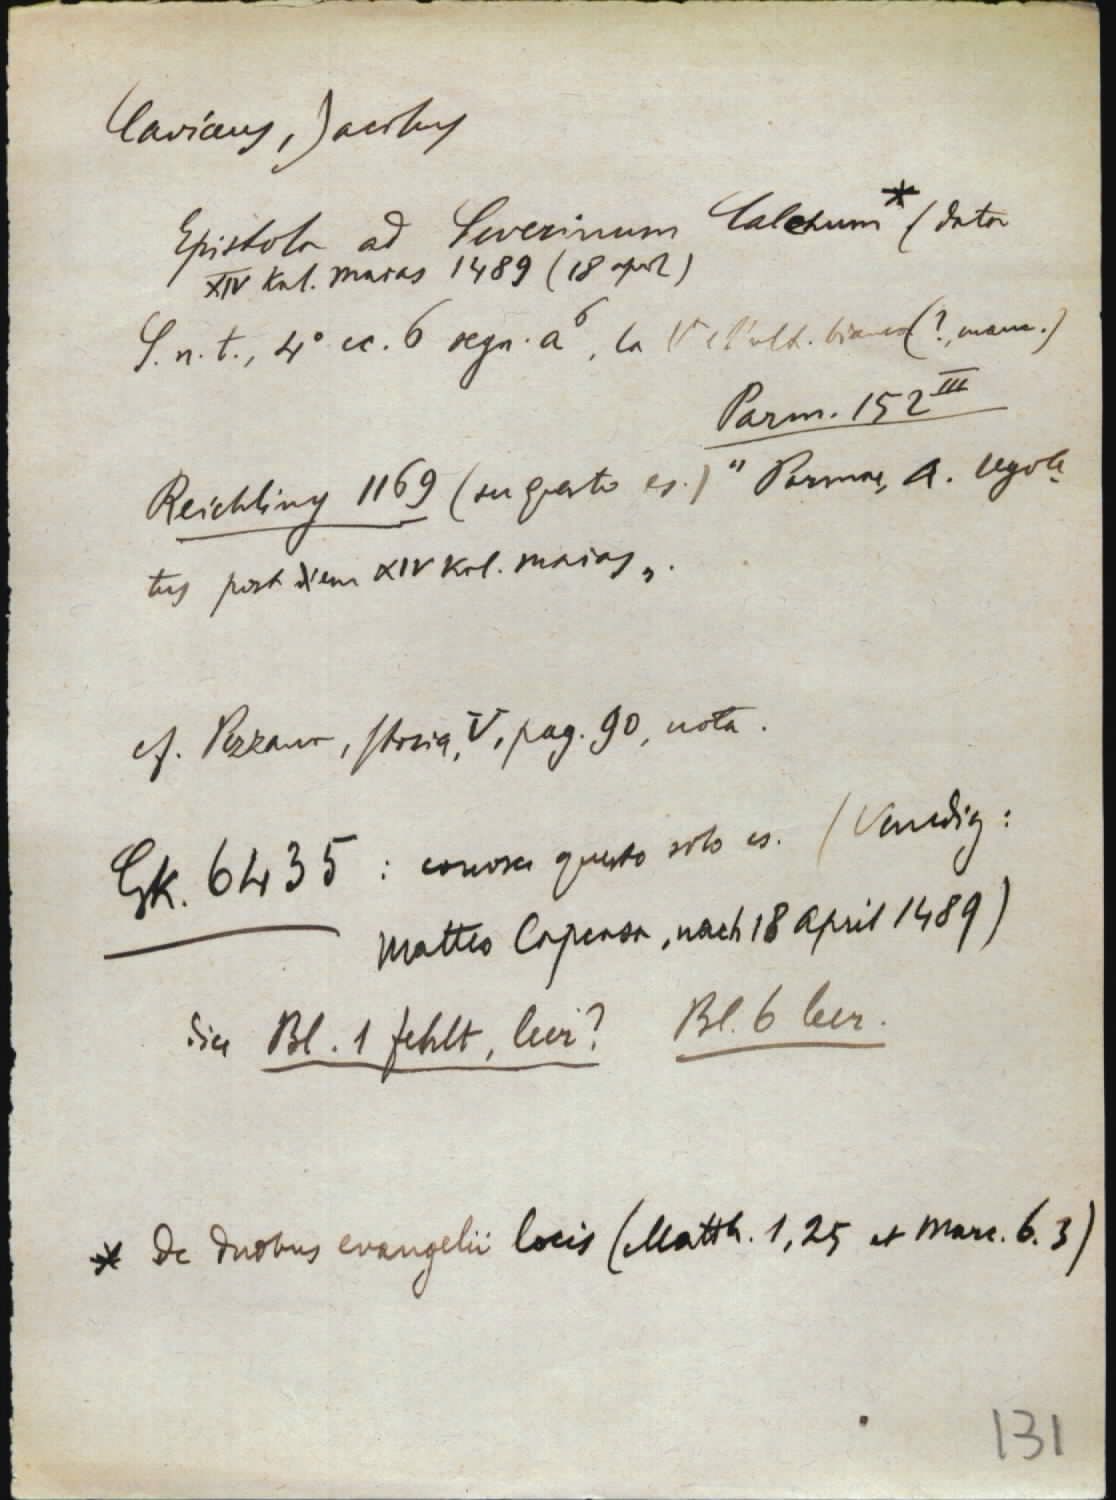 Caviceus, Jacobus
Epistola ad Severinum Calchum* (data
XIV Kal. maias 1489 (18 apr.)
S. n. t., 4° cc. 6 segn. a⁶, la 1ª e l'ult. bianca (?, manc.)
Parm. 152 III
Reichling 1169 (su questo es.) "Parmae, A. Ugole-
tus post diem XIV Kal. maias".
cf. Pezzana, Storia, V, pag. 90, nota.
Gk. 6435 : conosce questo solo es. (Venedig:
Matteo Capcasa, nach 18 April 1489)
dice Bl. 1 fehlt, leer? Bl. 6 leer.
* De duobus evangelii locis (Matth. 1,25 et Marc. 6.3)
131